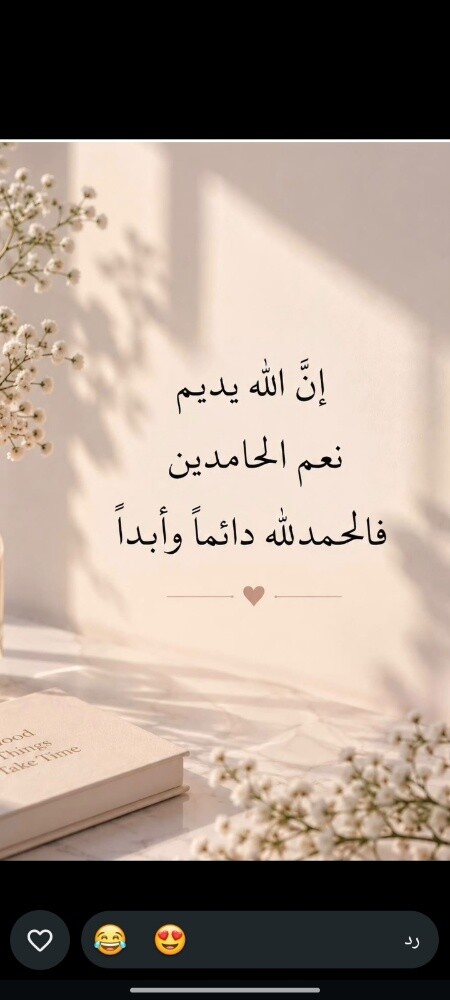 إنَّ الله يديم
نعم الحامدين
فالحمدلله دائماً وأبداً
Things
Take Time
رد